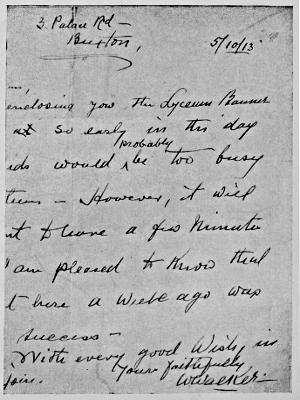 3. Palace Rd —
Buxton,
5/10/13
enclosing you the Lyceum Banner
at so early in the day
probably
ds would be too busy
them — However, it will
nt to have a few minutes
am pleased to know that
t here a week ago was
success —
With every good Wish, in
Yours faithfully,
WWalker.